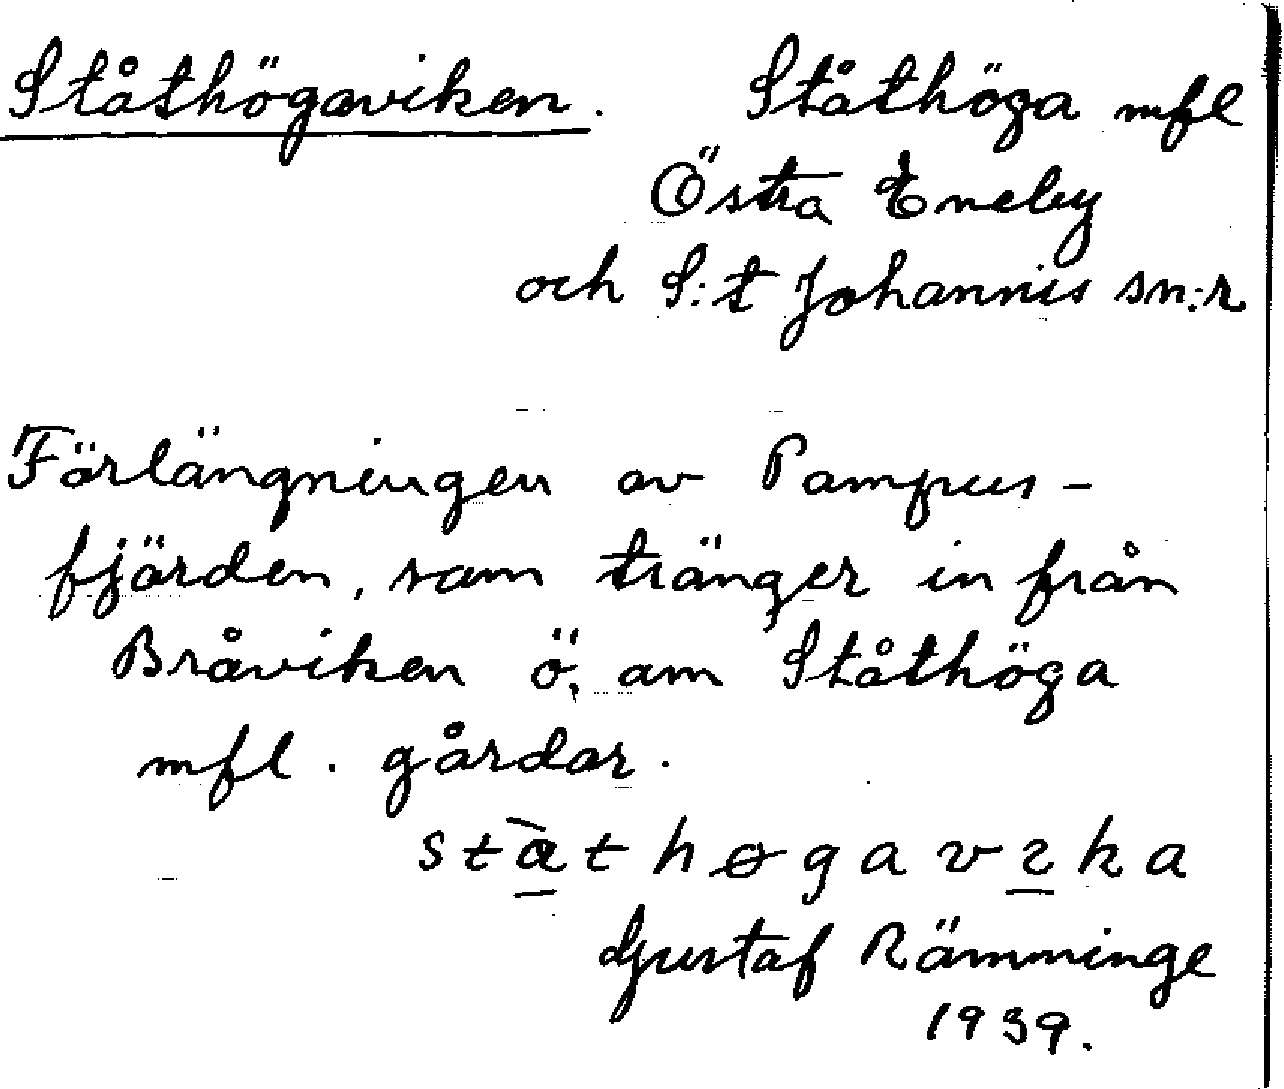 Ståthögaviken. Ståthöga mfl
Östra Eneby
och S:t Johannis sn:r
Förlängningen av Pampus-
fjärden, som tränger in från
Bråviken ö. om Ståthöga
mfl. gårdar.
Gustaf Rämminge
1939.